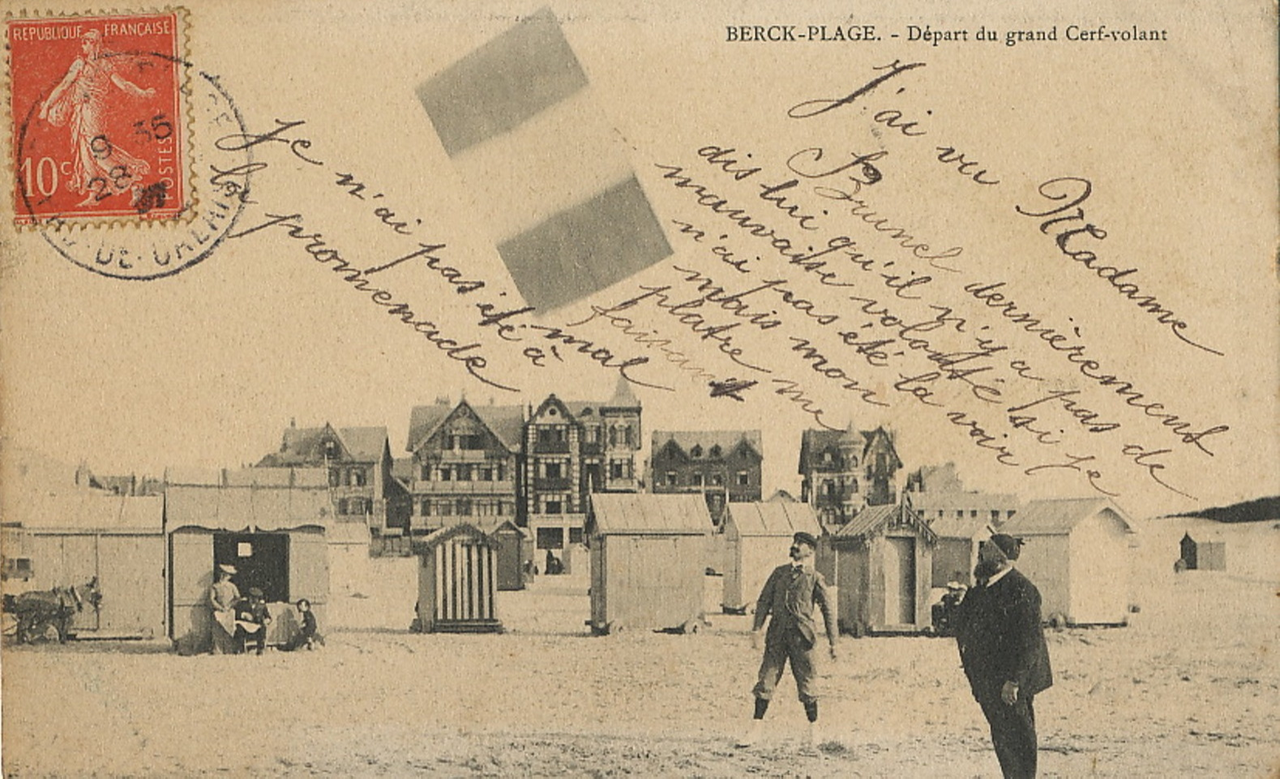 REPUBLIQUE FRANÇAISE
10c
POSTES
9 35
28
DE-CALAIS
BERCK-PLAGE. - Départ du grand Cerf-volant
J'ai vu Madame
Brunel dernièrement
dis lui qu'il n'y a pas de
mauvaise volonté si je
n'ai pas été la voir
mais mon
platre me
faisant
mal
Je n'ai pas été à
la promenade